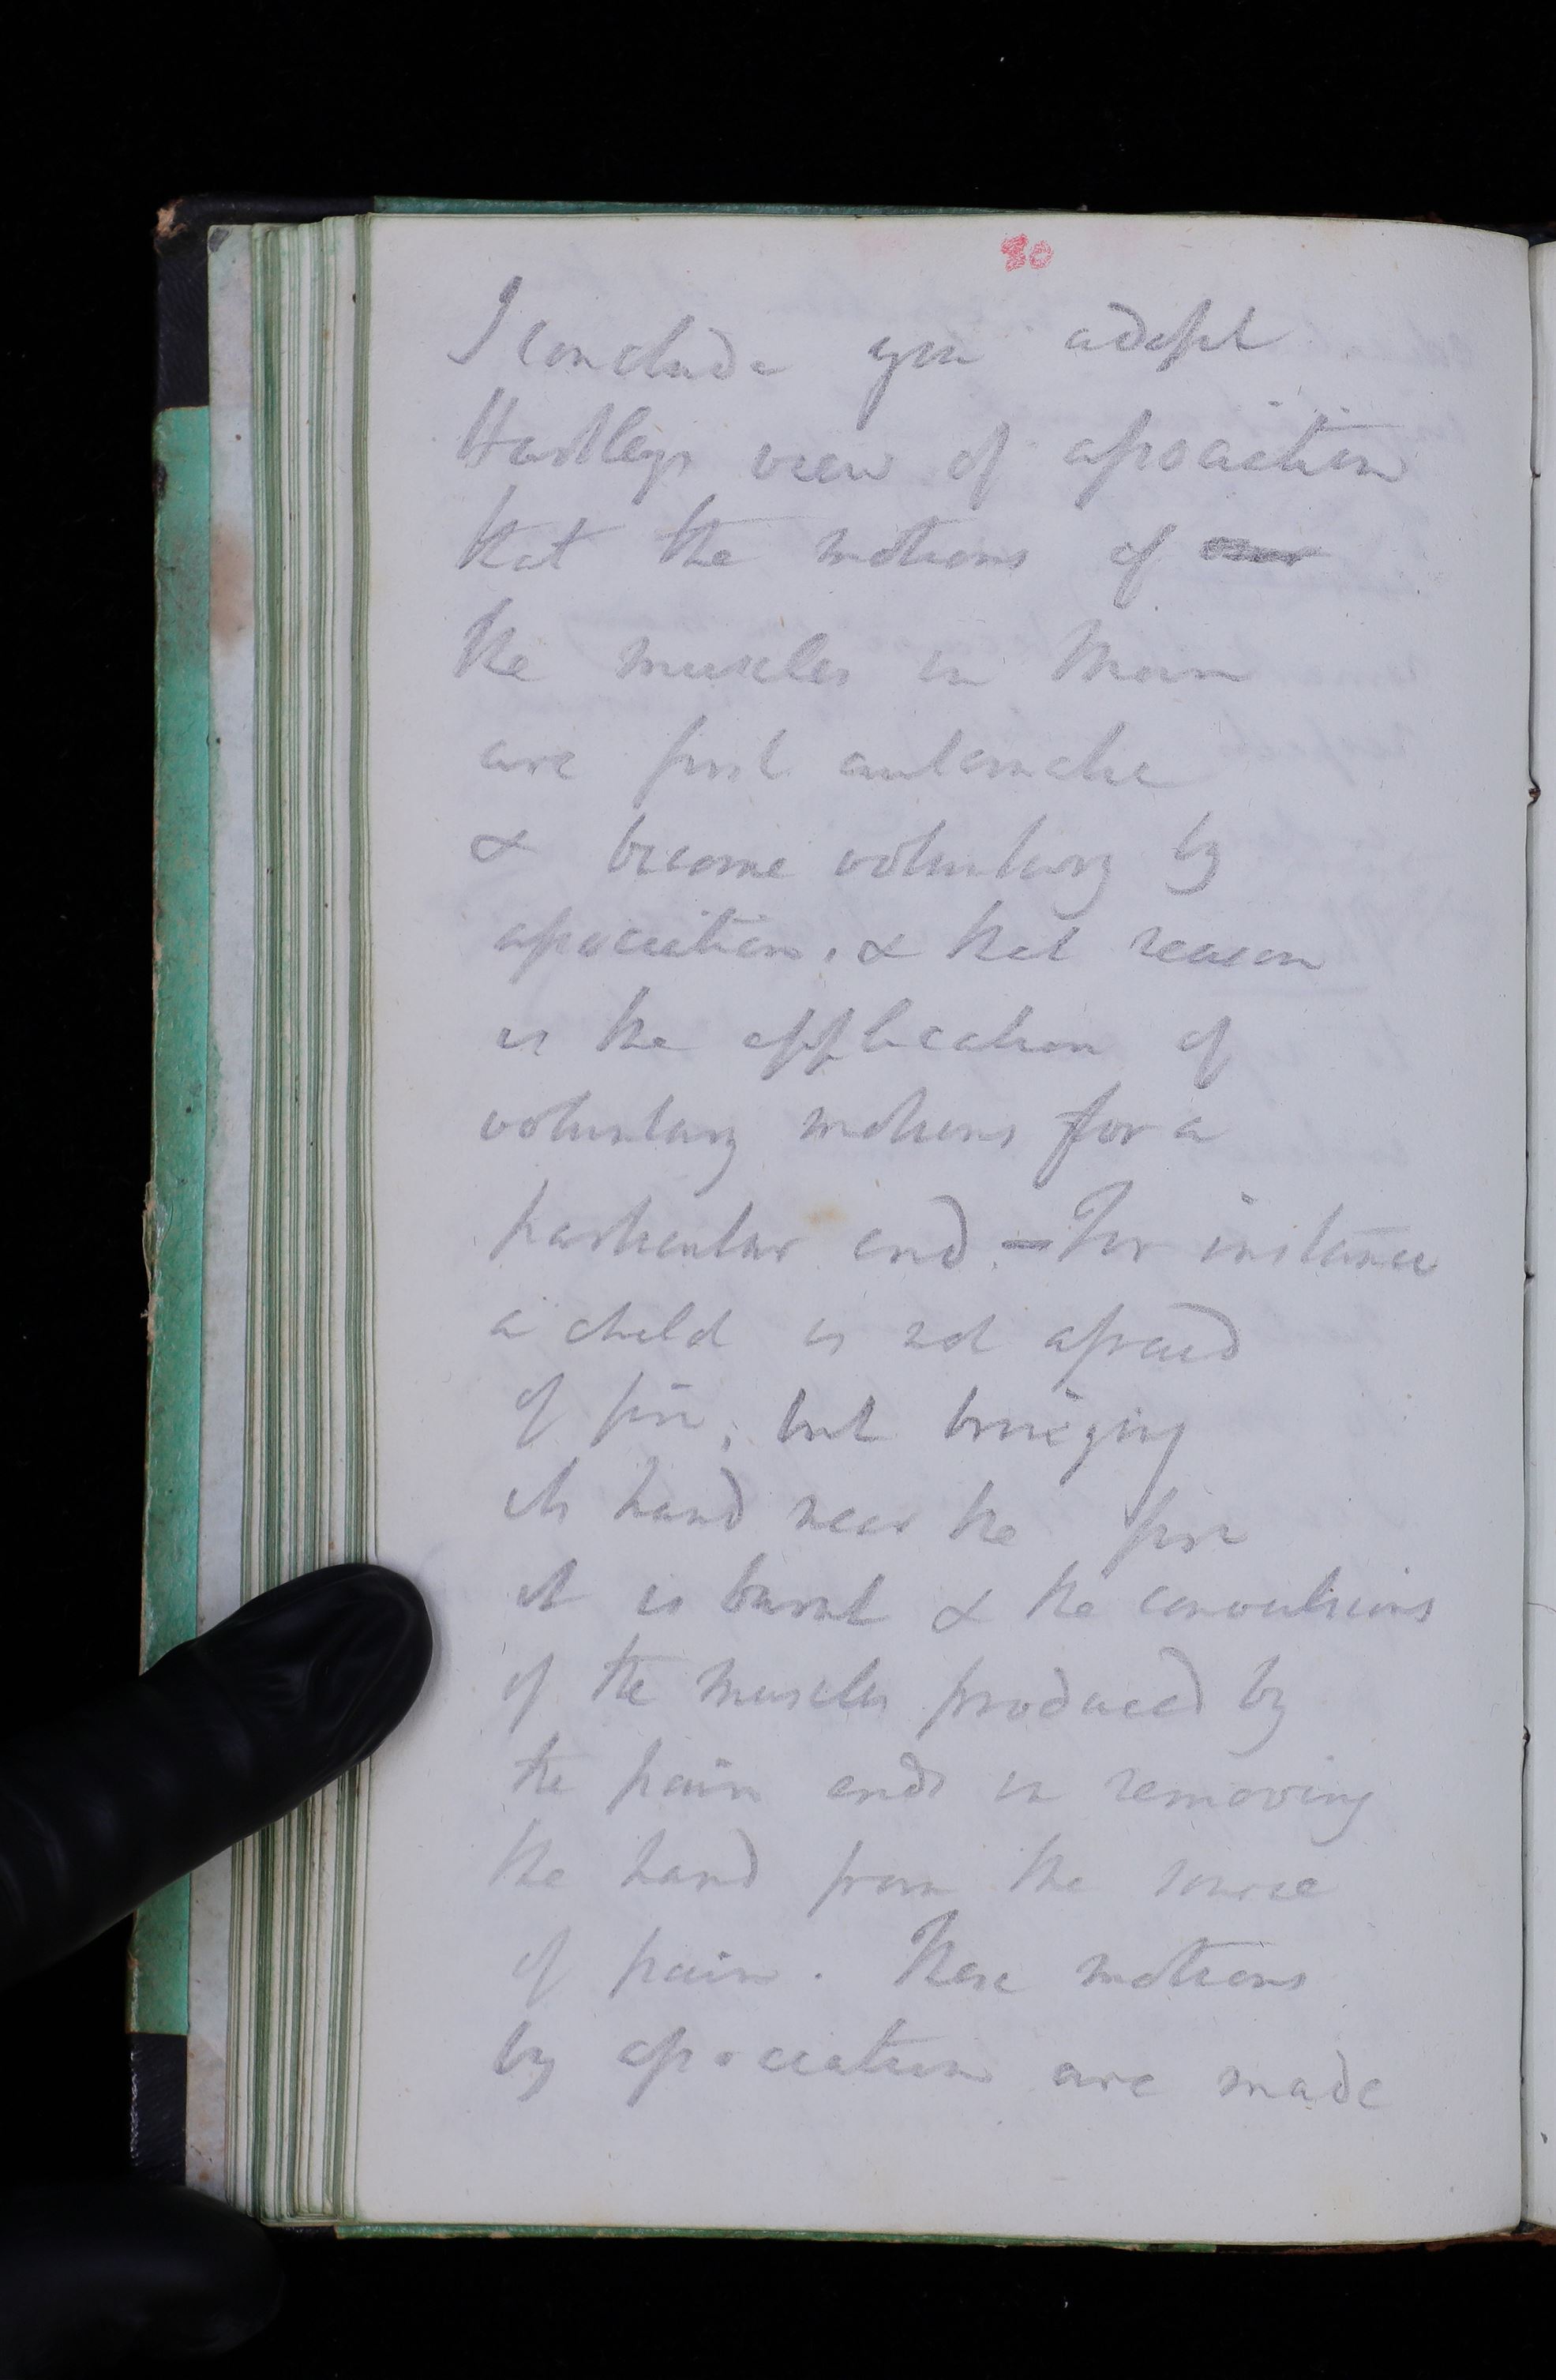 80
I conclude you adopt
Hartleys view of association
that the motions of
the muscles in Man
are first automatic
& become voluntary by
association. & that reason
is the application of
voluntary motions for a
particular end. — For instance
a child is not afraid
of fire; but bringing
its hand near the fire
it is burnt & the convulsions
of the muscles produced by
the pain ends in removing
the hand from the source
of pain. These motions
by association are made